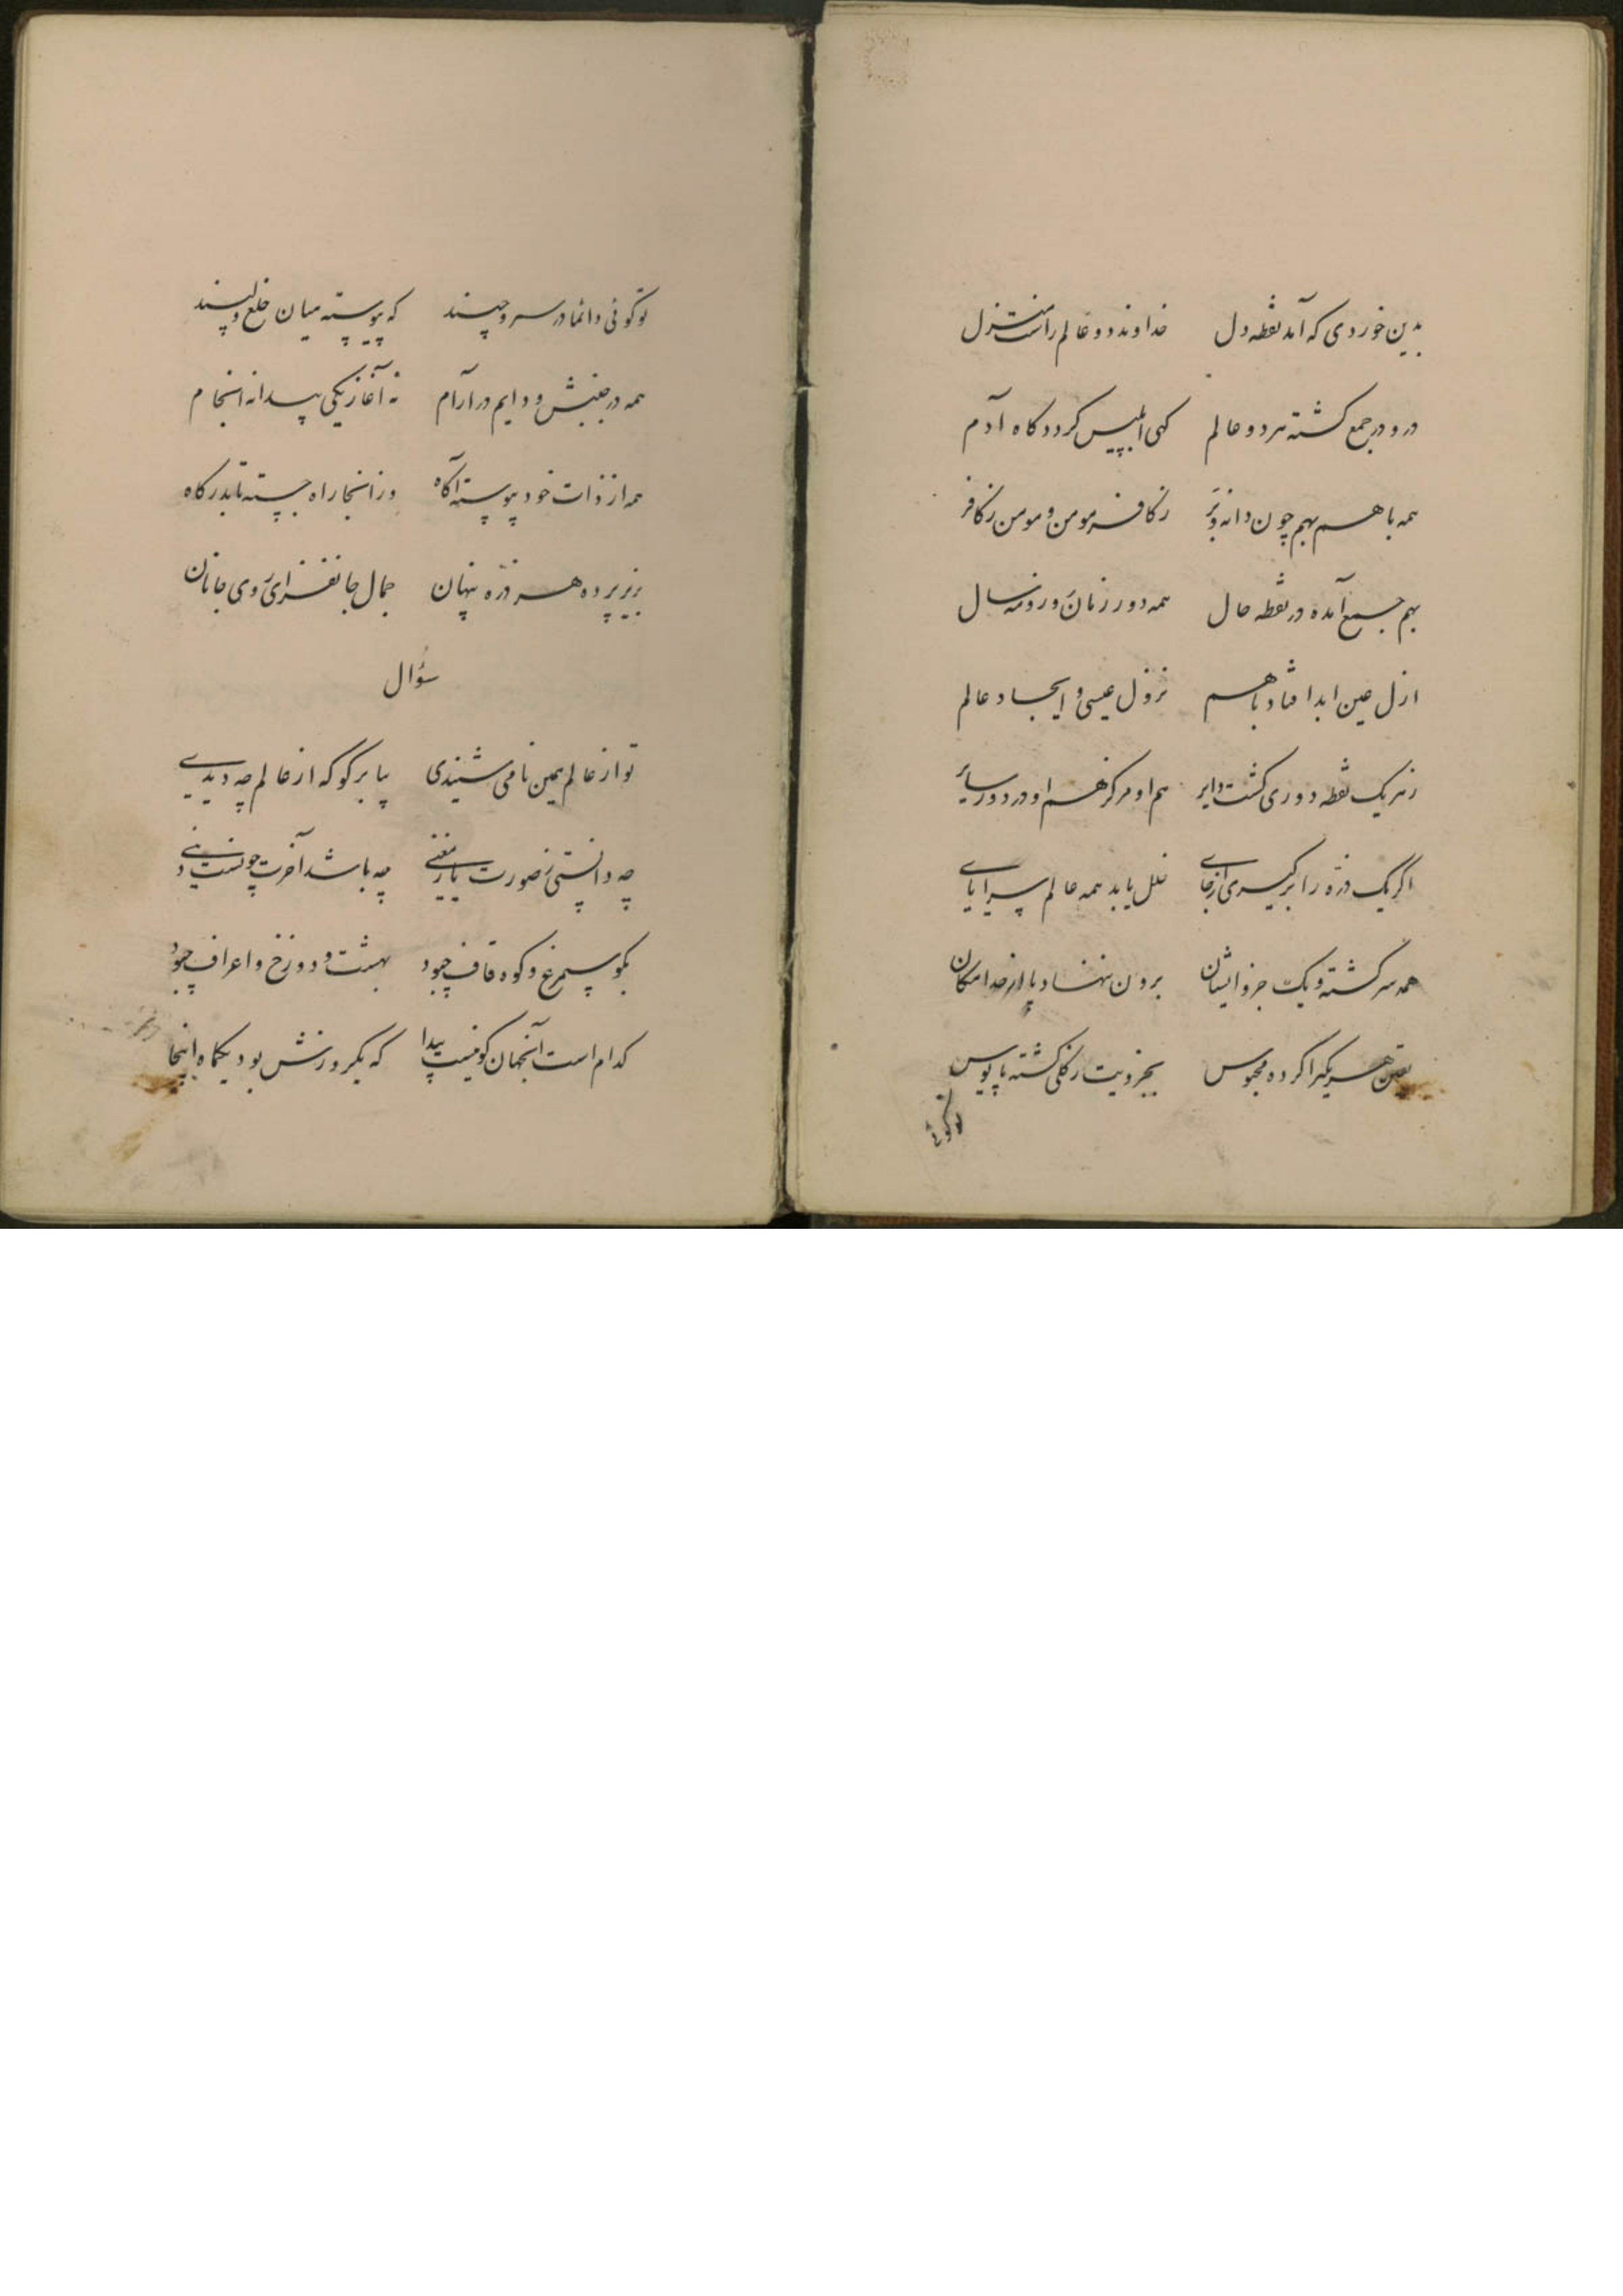 بدین خوردی که آمد نقطه دل خداوند دو عالم راست منزل
درو در جمع کشته هر دو عالم کهی ابلیس کردد کاه آدم
همه با هم بهم چون دانه و بر ز کافر مومن و مومن ز کافر
بهم جمع آمده در نقطه حال همه دور زمان و روز و مه سال
ازل عین ابد افتاد با هم نزول عیسی و ایجاد عالم
زهر یک نقطه دوری کشت دایر هم او مرکز هم او در دور سایر
اکر یک ذره را برکیری از جای خلل یابد همه عالم سراپای
همه سرکشته و یک جزو ایشان برون ننهاد پا از حد امکان
تعین هر یکی را کرده محبوس بجزویت ز کلی کشته مایوس
تو کوئی
تو کوئی دائما در سیر و حبسند که پیوسته میان خلع و لبسند
همه در جنبش و دایم در آرام نه آغاز یکی پیدا نه انجام
همه از ذات خود پیوسته آکاه وز انجا راه جسته تا بدرکاه
بزیر پرده هر ذره پنهان جمال جانفزای روی جانان
سؤال
تو از عالم همین نامی شنیدی بیا برکو که از عالم چه دیدی
چه دانستی ز صورت یا ز معنی چه باشد آخرت چونست دنیی
بکو سیمرغ و کوه قاف چبود بهشت و دوزخ و اعراف چبود
کدام است آنجهان کو نیست پیدا که یکروزش بود یکماه اینجا